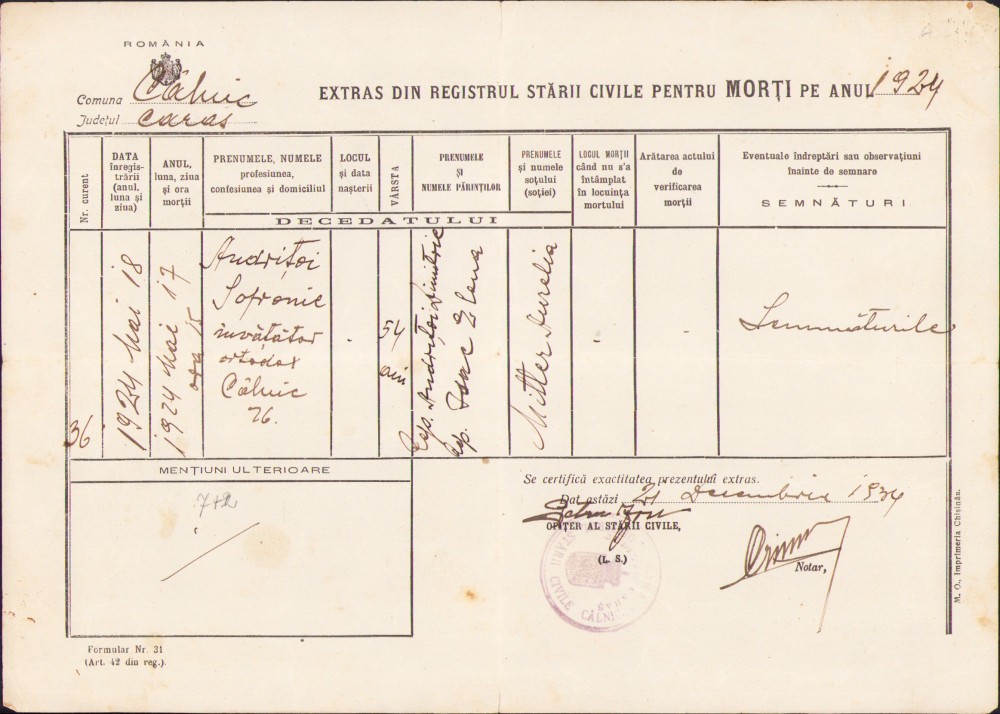 ROMÂNIA
Comuna Câlnic
Județul caras
EXTRAS DIN REGISTRUL STĂRII CIVILE PENTRU MORȚI PE ANUL 1924
Nr. curent
DATA
înregis-
trării
(anul,
luna și
ziua)
ANUL,
luna, ziua
și ora
morții
PRENUMELE, NUMELE
profesiunea,
confesiunea și domiciliul
LOCUL
și data
nașterii
VÂRSTA
PRENUMELE
ȘI
NUMELE PĂRINȚILOR
PRENUMELE
și numele
soțului
(soției)
LOCUL MORȚII
când nu s'a
întâmplat
în locuința
mortului
Arătarea actului
de
verificarea
morții
Eventuale îndreptări sau observațiuni
înainte de semnare
SEMNĂTURI
DECEDATULUI
36
1924 Mai 18
1924 Mai 17
ora 15
Andrițoi
Sofronie
învățător
ortodox
Câlnic
76.
54
ani
Rep. Andrițoi Dimitrie
Rep. Isac Elena
Mitter Aurelia
Semnăturile
MENȚIUNI ULTERIOARE
Se certifică exactitatea prezentului extras.
Dat astăzi 21 Decembrie 1934
OFIȚER AL STĂRII CIVILE,
(L. S.)
Notar,
CIVILE CÂLNIC
M. O., Imprimeria Chișinău.
Formular Nr. 31
(Art. 42 din reg.).